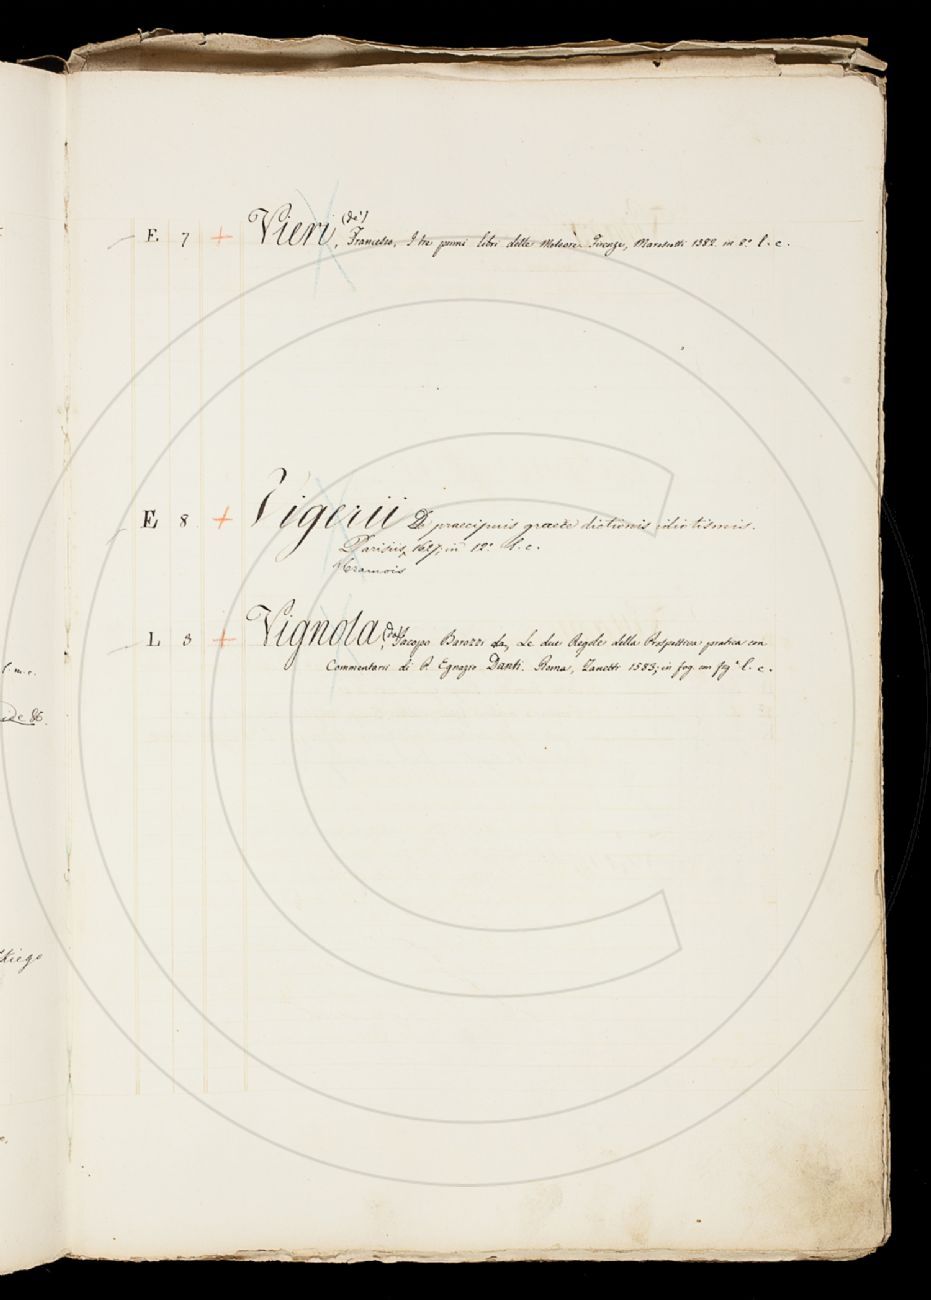 E 7 + Vieri (de'), Francesco, I tre primi libri delle Meteore. Firenze, Marescotti 1582. in 8.° l. c.
E 8 + Vigerii De praecipuis graecae dictionis idiotismis.
Parisiis, 1627, in 12.° l. c.
Cramois
L 8 + Vignola (da), Jacopo Barozzi da, Le due Regole della Prospettiva pratica con
Commentarii di P. Egnazio Danti. Roma, Zanetti 1583, in fog. con fig.e l. c.
l. m. c.